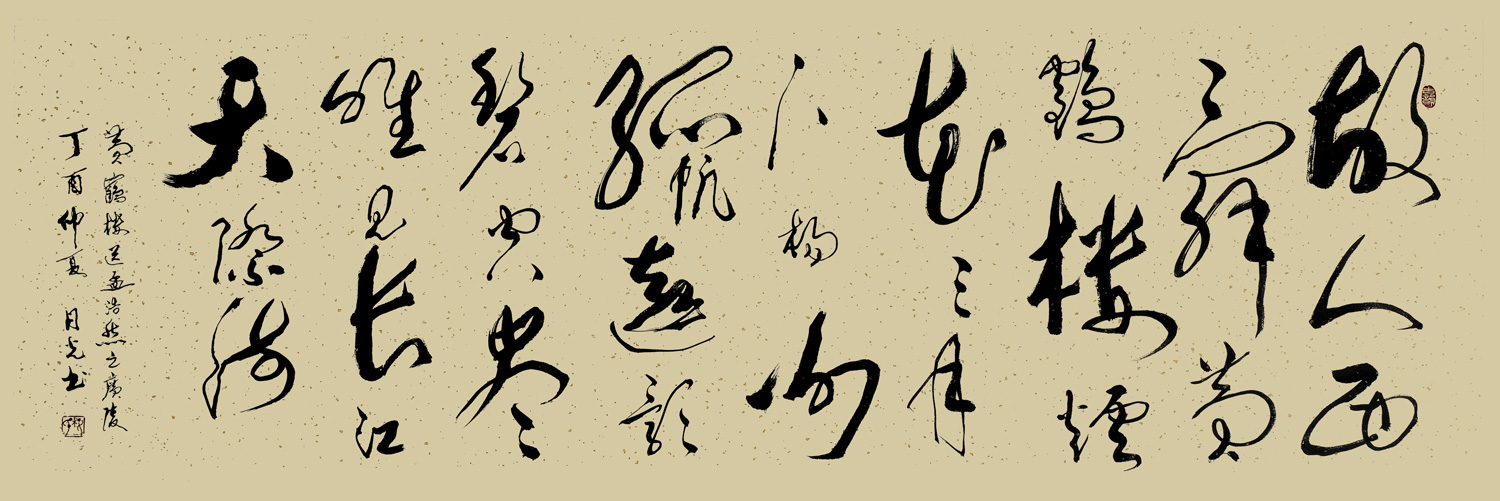 故人西
辭黄
鶴楼煙
花三月
下楊州
孤帆遠影
碧空尽
唯見長江
天際流
黄鶴楼送孟浩然之廣陵
丁酉仲夏 月光书